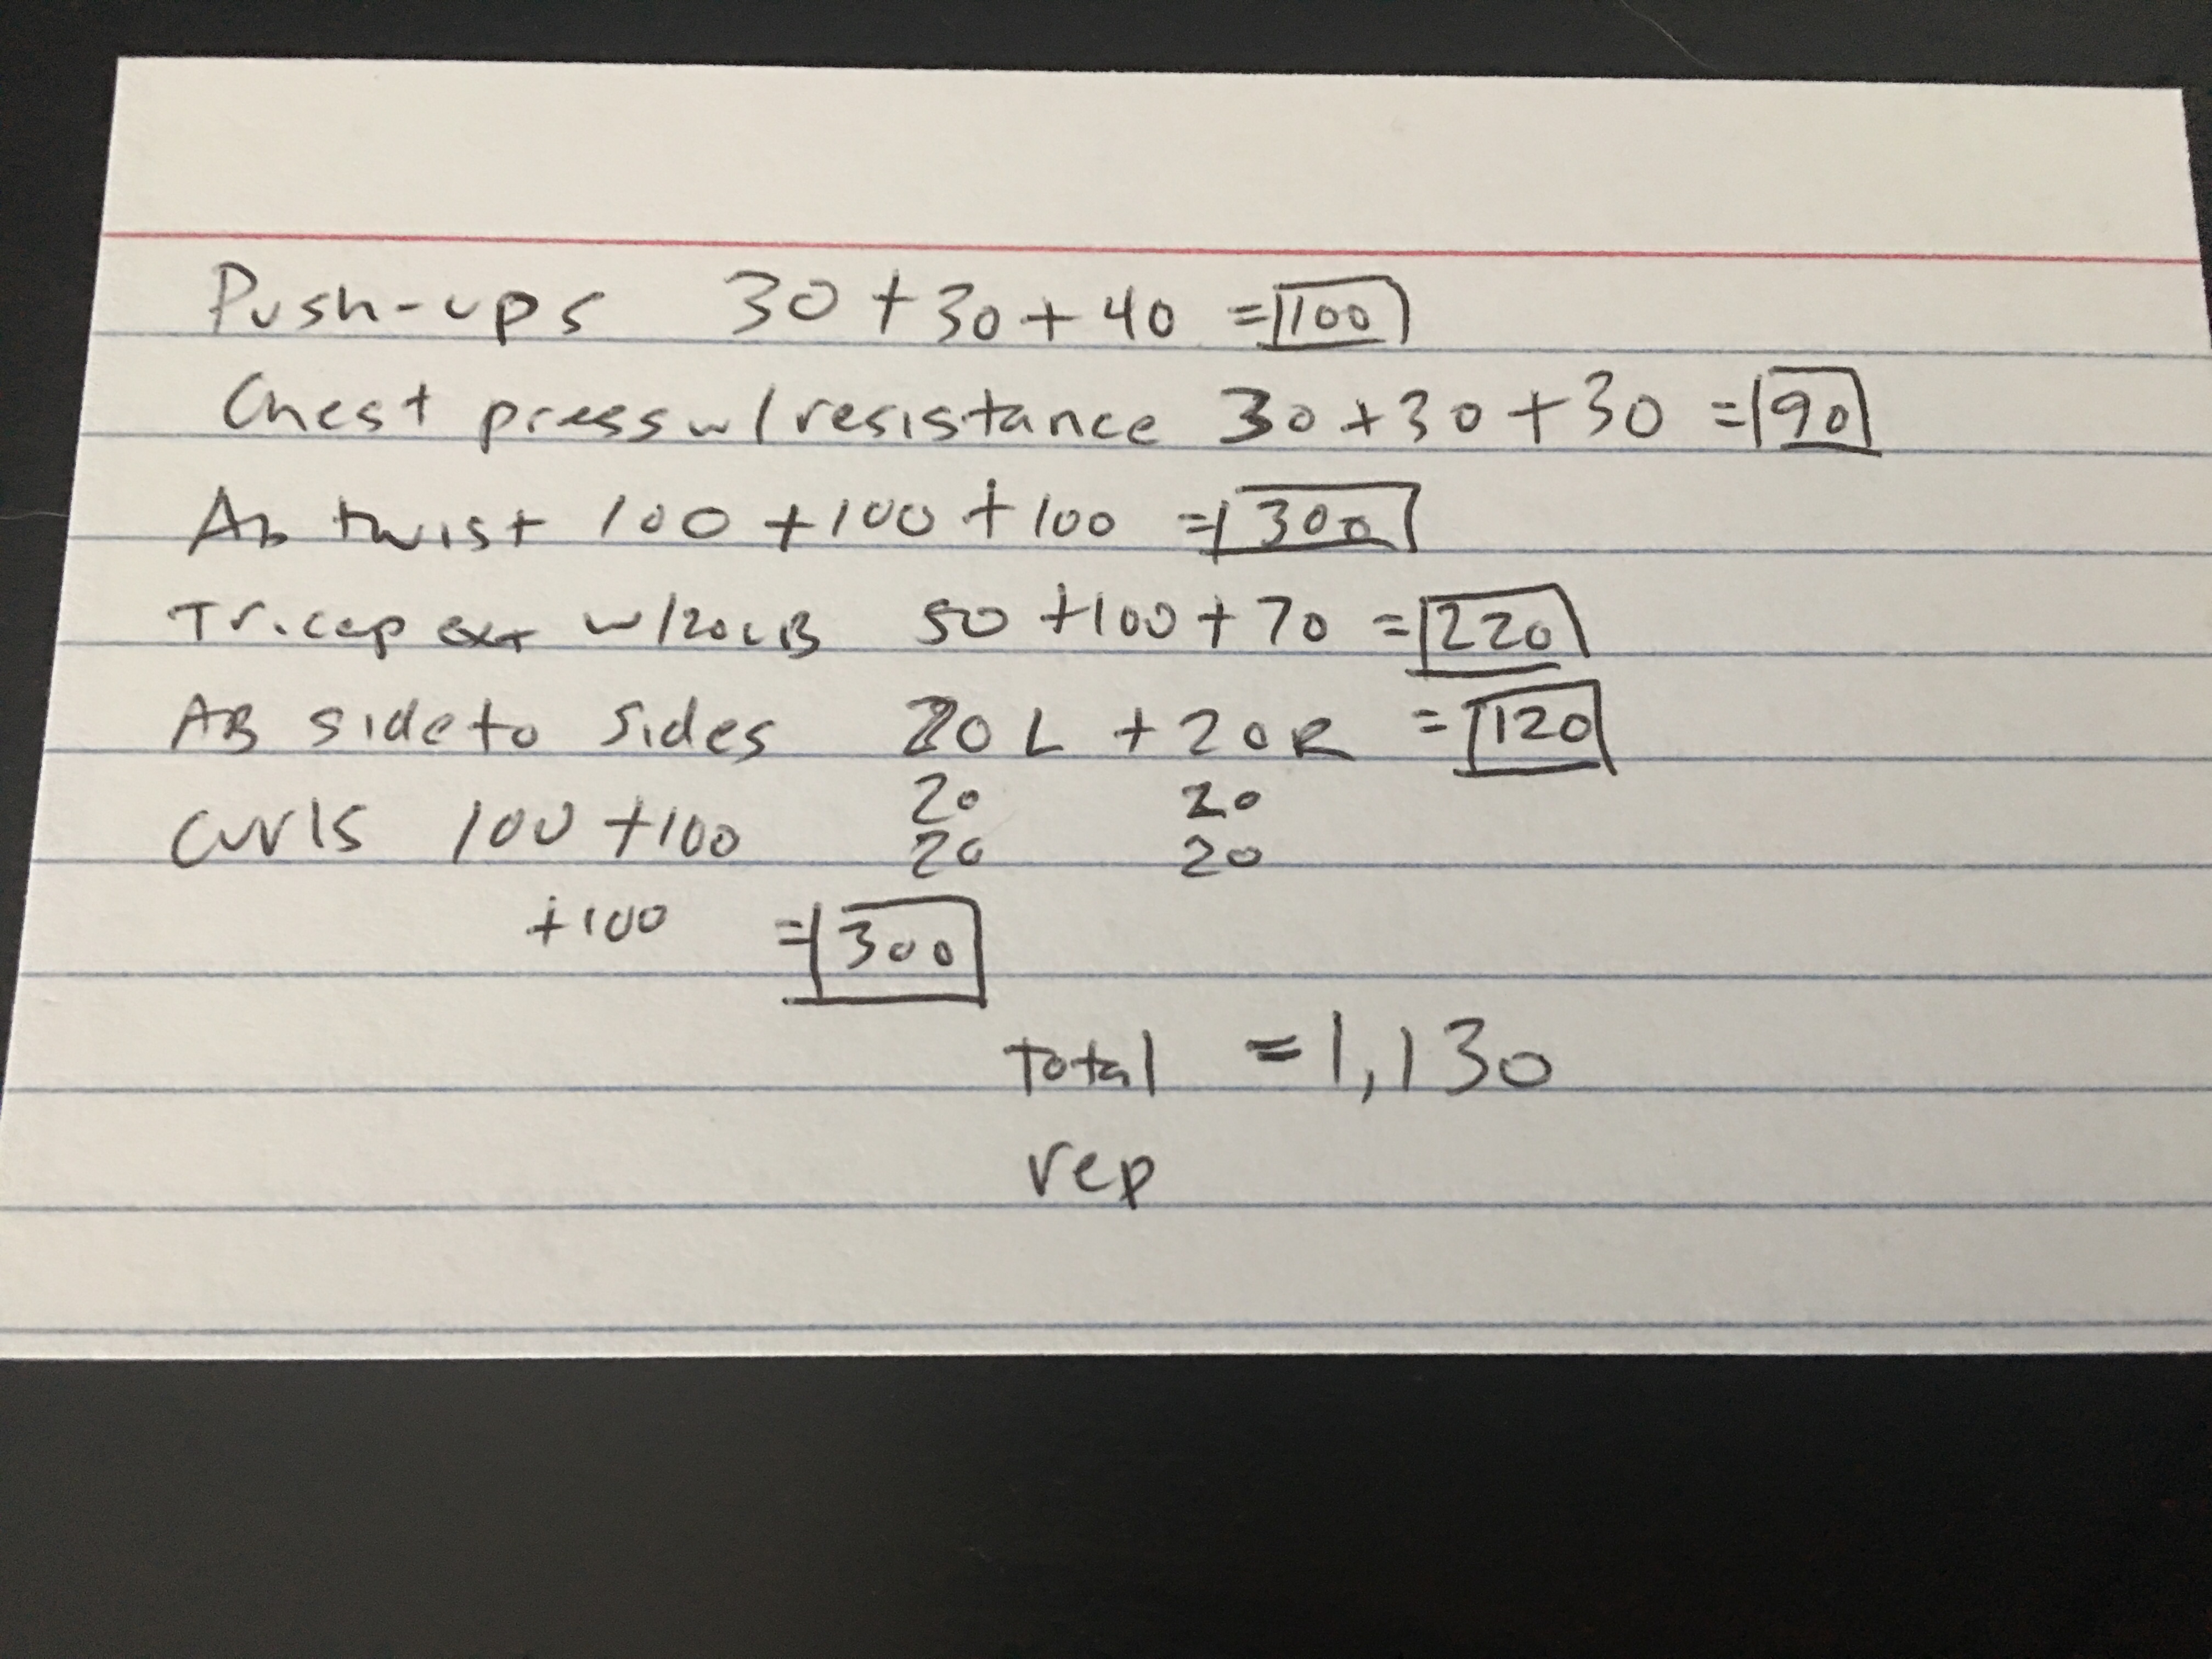 Push-ups 30 + 30 + 40 = 100
Chest press w/ resistance 30 + 30 + 30 = 90
Ab twist 100 + 100 + 100 = 300
Tricep ext w/ 20LB 50 + 100 + 70 = 220
AB side to sides 20 L + 20 R = 120
20 20
curls 100 + 100 20 20
+ 100 = 300
total = 1,130
rep